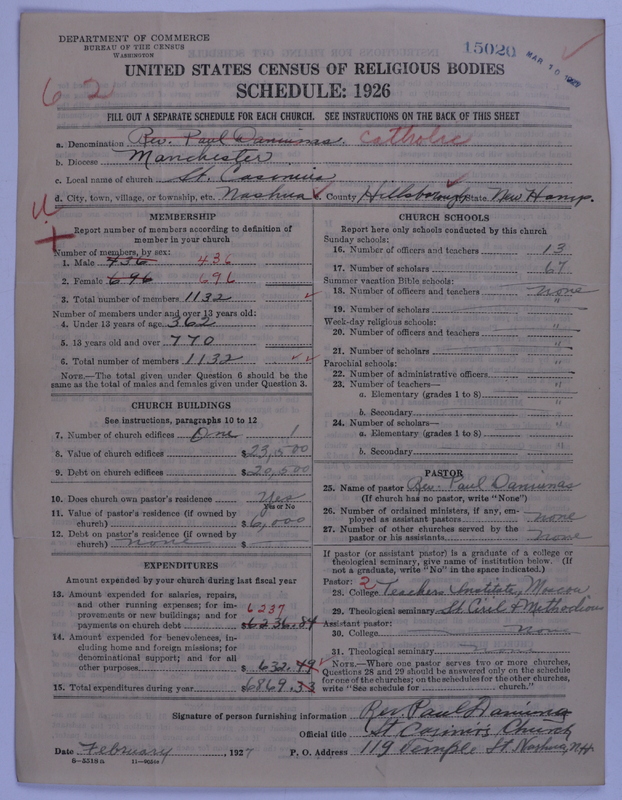 DEPARTMENT OF COMMERCE
BUREAU OF THE CENSUS
WASHINGTON
15020
MAR 10 1927
62
UNITED STATES CENSUS OF RELIGIOUS BODIES
SCHEDULE: 1926
FILL OUT A SEPARATE SCHEDULE FOR EACH CHURCH. SEE INSTRUCTIONS ON THE BACK OF THIS SHEET
a. Denomination Rev. Paul Daniunas. Catholic
b. Diocese Manchester
c. Local name of church St. Casimirs
d. City, town, village, or township, etc. Nashua County Hillsborough State New Hamp.
MEMBERSHIP
Report number of members according to definition of
member in your church
Number of members, by sex:
1. Male 436
2. Female 696 696
3. Total number of members 1132
Number of members under and over 13 years old:
4. Under 13 years of age 362
5. 13 years old and over 770
6. Total number of members 1132
NOTE.—The total given under Question 6 should be the
same as the total of males and females given under Question 3.
CHURCH BUILDINGS
See instructions, paragraphs 10 to 12
7. Number of church edifices One 1
8. Value of church edifices $ 23,500
9. Debt on church edifices $ 20,500
10. Does church own pastor's residence Yes
Yes or No
11. Value of pastor's residence (if owned by
church) $ 6,000
12. Debt on pastor's residence (if owned by
church) none $
EXPENDITURES
Amount expended by your church during last fiscal year
13. Amount expended for salaries, repairs,
and other running expenses; for im-
provements or new buildings; and for 6237
payments on church debt $ 6236.84
14. Amount expended for benevolences, in-
cluding home and foreign missions; for
denominational support; and for all
other purposes $ 632.49
15. Total expenditures during year $ 6869.33
CHURCH SCHOOLS
Report here only schools conducted by this church
Sunday schools:
16. Number of officers and teachers 13
17. Number of scholars 67
Summer vacation Bible schools:
18. Number of officers and teachers none
19. Number of scholars "
Week-day religious schools:
20. Number of officers and teachers "
21. Number of scholars "
Parochial schools:
22. Number of administrative officers "
23. Number of teachers—
a. Elementary (grades 1 to 8) "
b. Secondary "
24. Number of scholars—
a. Elementary (grades 1 to 8) "
b. Secondary "
PASTOR
25. Name of pastor Rev. Paul Daniunas
(If church has no pastor, write "None")
26. Number of ordained ministers, if any, em-
ployed as assistant pastors none
27. Number of other churches served by the
pastor or his assistants none
If pastor (or assistant pastor) is a graduate of a college or
theological seminary, give name of institution below. (If
not a graduate, write "No" in the space indicated.)
Pastor: 2
28. College Teachers Institute, Moscow
29. Theological seminary St. Ciril & Methodious
Assistant pastor:
30. College None
31. Theological seminary None
NOTE.—Where one pastor serves two or more churches,
Questions 28 and 29 should be answered only on the schedule
for one of the churches; on the schedules for the other churches,
write "See schedule for church."
Signature of person furnishing information Rev Paul Daniunas
Official title St Casimir's Church
Date February, 1927 P. O. Address 119 Temple St. Nashua, N.H.
8—5318a 11—9051a